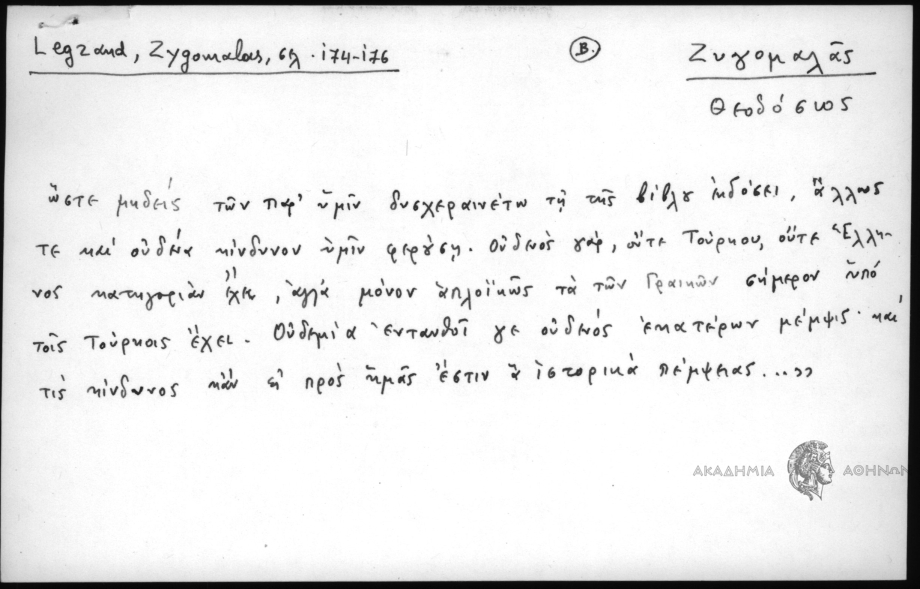 Legrand, Zygomalas, σελ. 174-176
Β.
Ζυγομαλᾶς
Θεοδόσιος
ὥστε μηδείς τῶν παρ' ὑμῖν δυσχεραινέτω τῇ τῆς βίβλου ἐκδόσει, ἄλλως
τε καί οὐδένα κίνδυνον ὑμῖν φερούσῃ. Οὐδενός γάρ, οὔτε Τούρκου, οὔτε Ἕλλη-
νος κατηγορίαν ἔχει, ἀλλά μόνον ἁπλοϊκῶς τά τῶν Γραικῶν σήμερον ὑπό
τοῖς Τούρκοις ἔχει. Οὐδεμία ἐνταυθοῖ γε οὐδενός ἑκατέρων μέμψις· καί
τίς κίνδυνος κἄν εἰ πρός ἡμᾶς ἐστιν ἅ ἱστορικά πέμψειας...››
ΑΚΑΔΗΜΙΑ ΑΘΗΝΩΝ